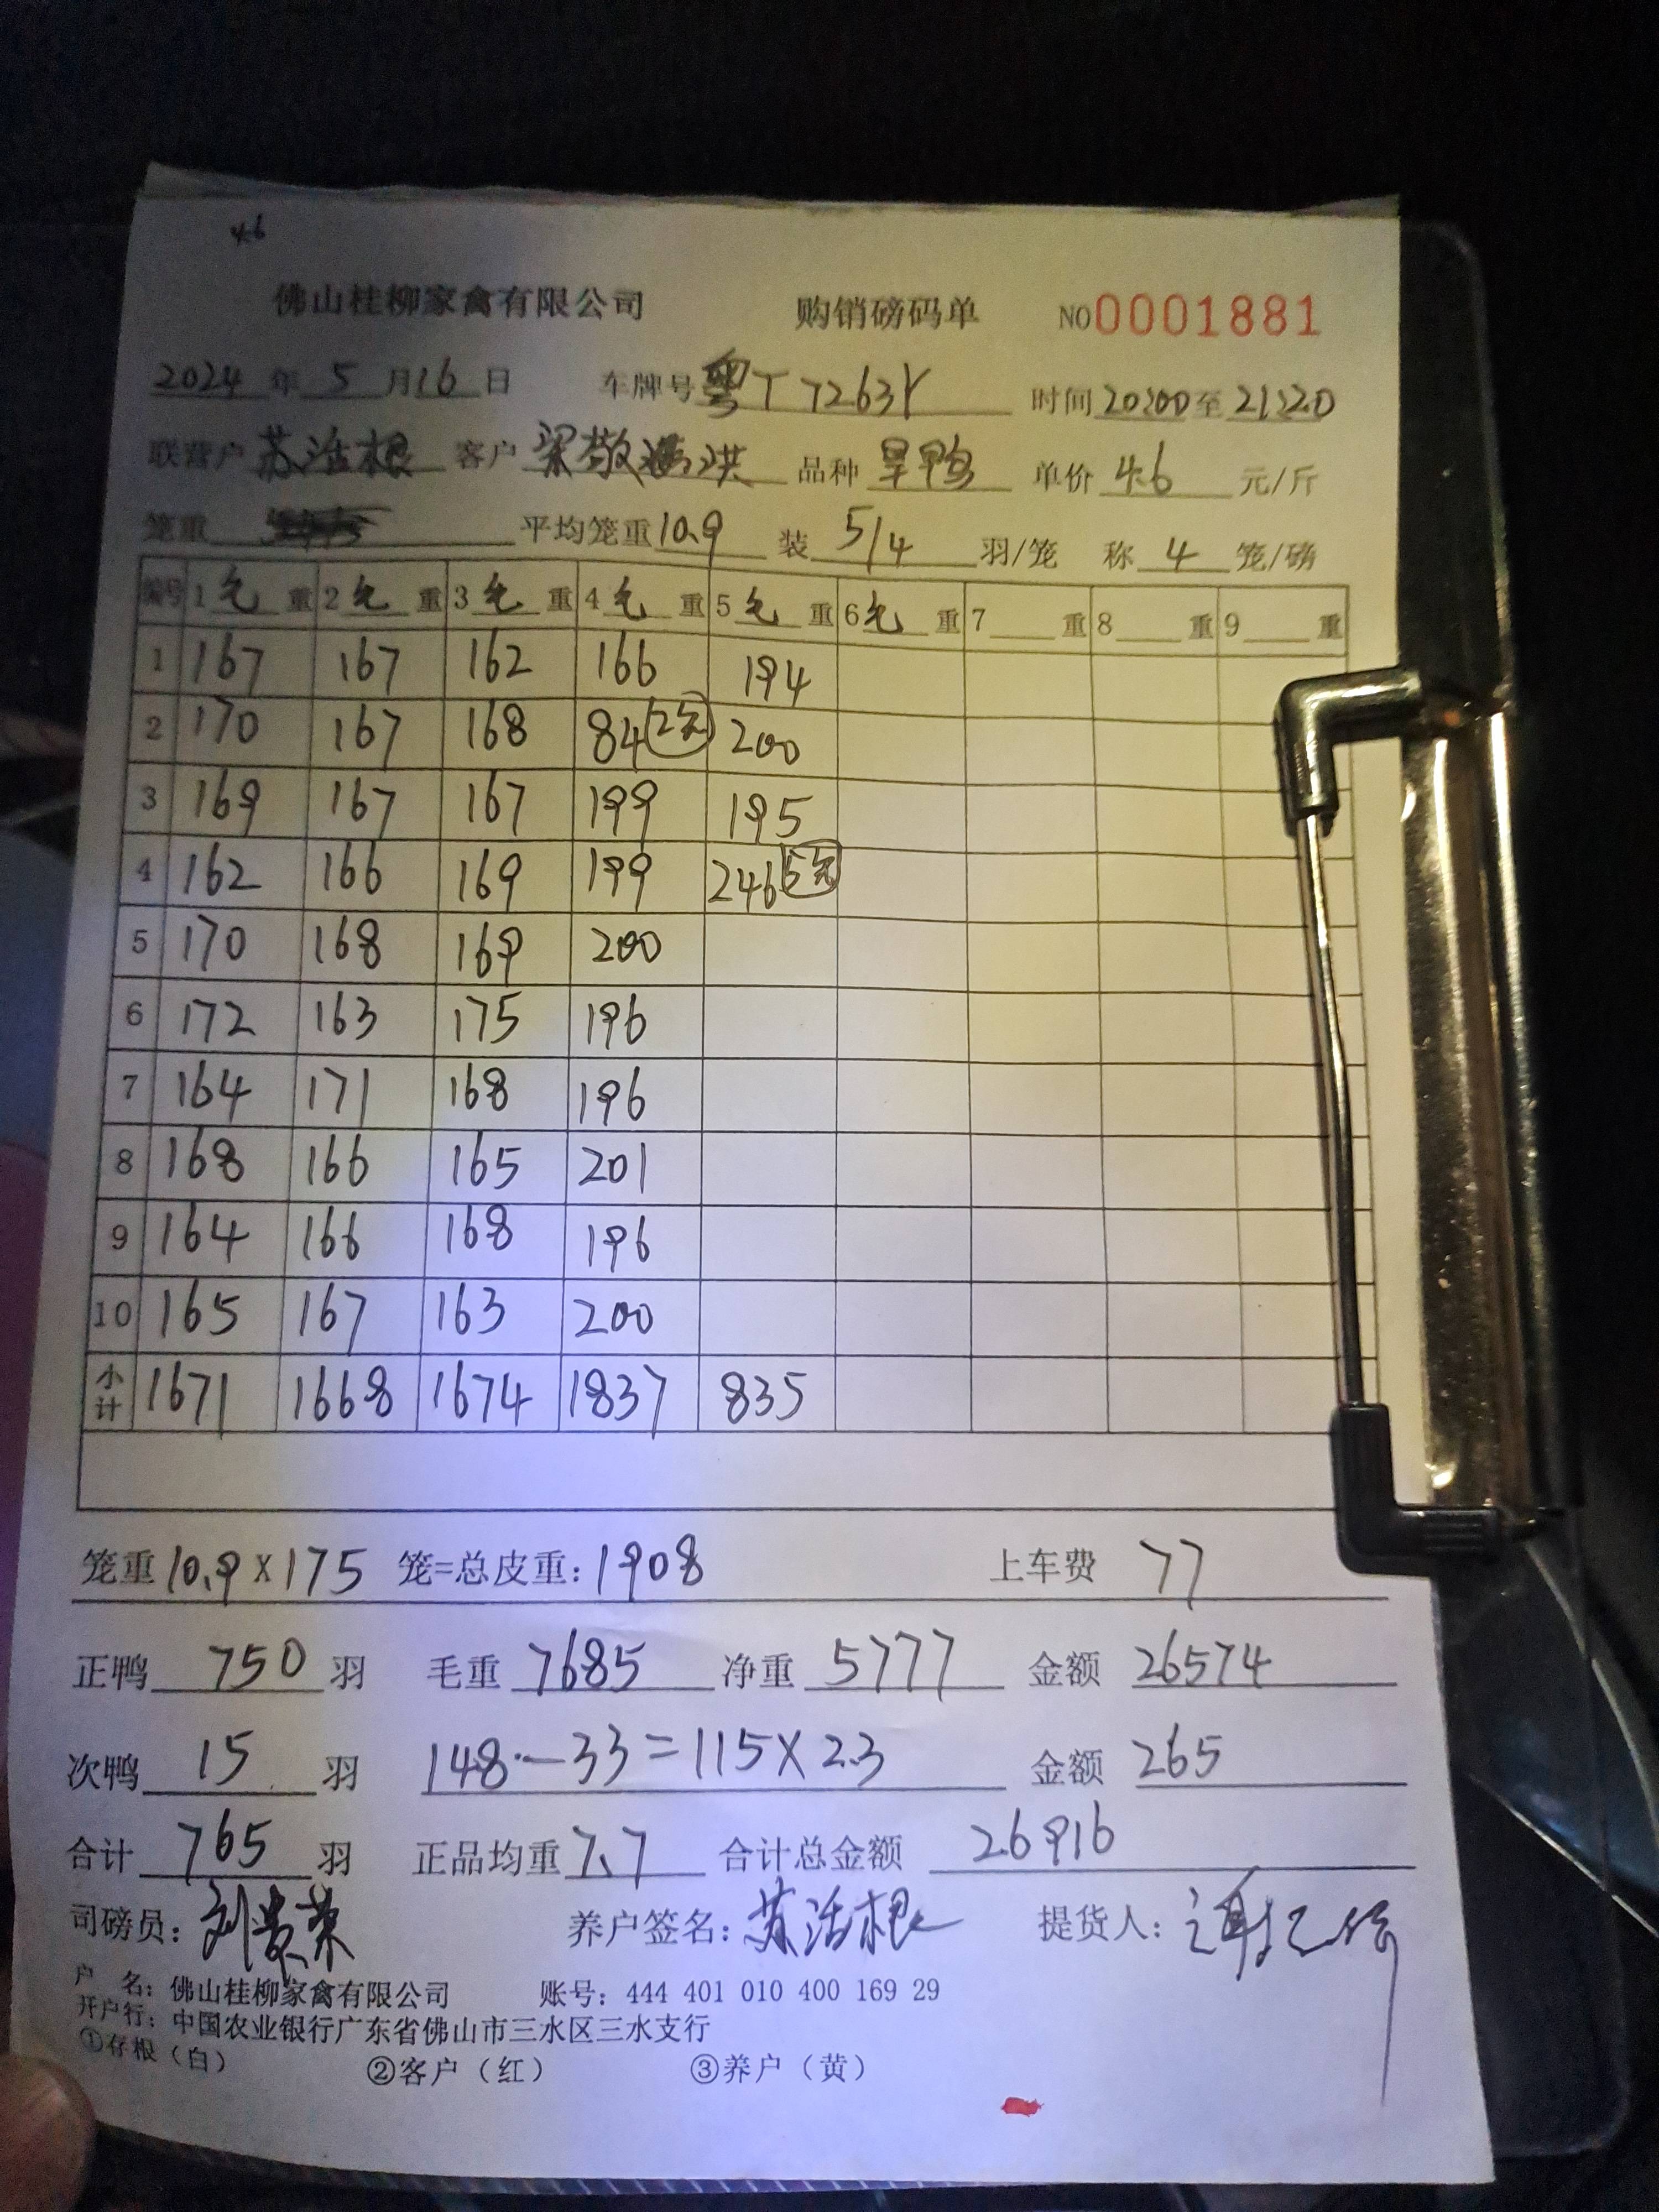 4.6
佛山桂柳家禽有限公司 购销磅码单 NO 0001881
2024 年 5 月 16 日 车牌号 粤T7263Y 时间 20:00 至 21:20
联营户 苏活根 客户 梁敬洪 品种 旱鸭 单价 4.6 元/斤
笼重 平均笼重 10.9 装 5/4 羽/笼 称 4 笼/磅
编号 1 毛 重 2 毛 重 3 毛 重 4 毛 重 5 毛 重 6 毛 重 7 重 8 重 9 重
1 167 167 162 166 194
2 170 167 168 84 2笼 200
3 169 167 167 199 195
4 162 166 169 199 246 5笼
5 170 168 169 200
6 172 163 175 196
7 164 171 168 196
8 168 166 165 201
9 164 166 168 196
10 165 167 163 200
小计 1671 1668 1674 1837 835
笼重 10.9 × 175 笼=总皮重: 1908 上车费 77
正鸭 750 羽 毛重 7685 净重 5777 金额 26574
次鸭 15 羽 148 - 33 = 115 × 2.3 金额 265
合计 765 羽 正品均重 7.7 合计总金额 26916
司磅员: 刘贵荣 养户签名: 苏活根 提货人: 谢
户 名: 佛山桂柳家禽有限公司 账号: 444 401 010 400 169 29
开户行: 中国农业银行广东省佛山市三水区三水支行
①存根（白） ②客户（红） ③养户（黄）